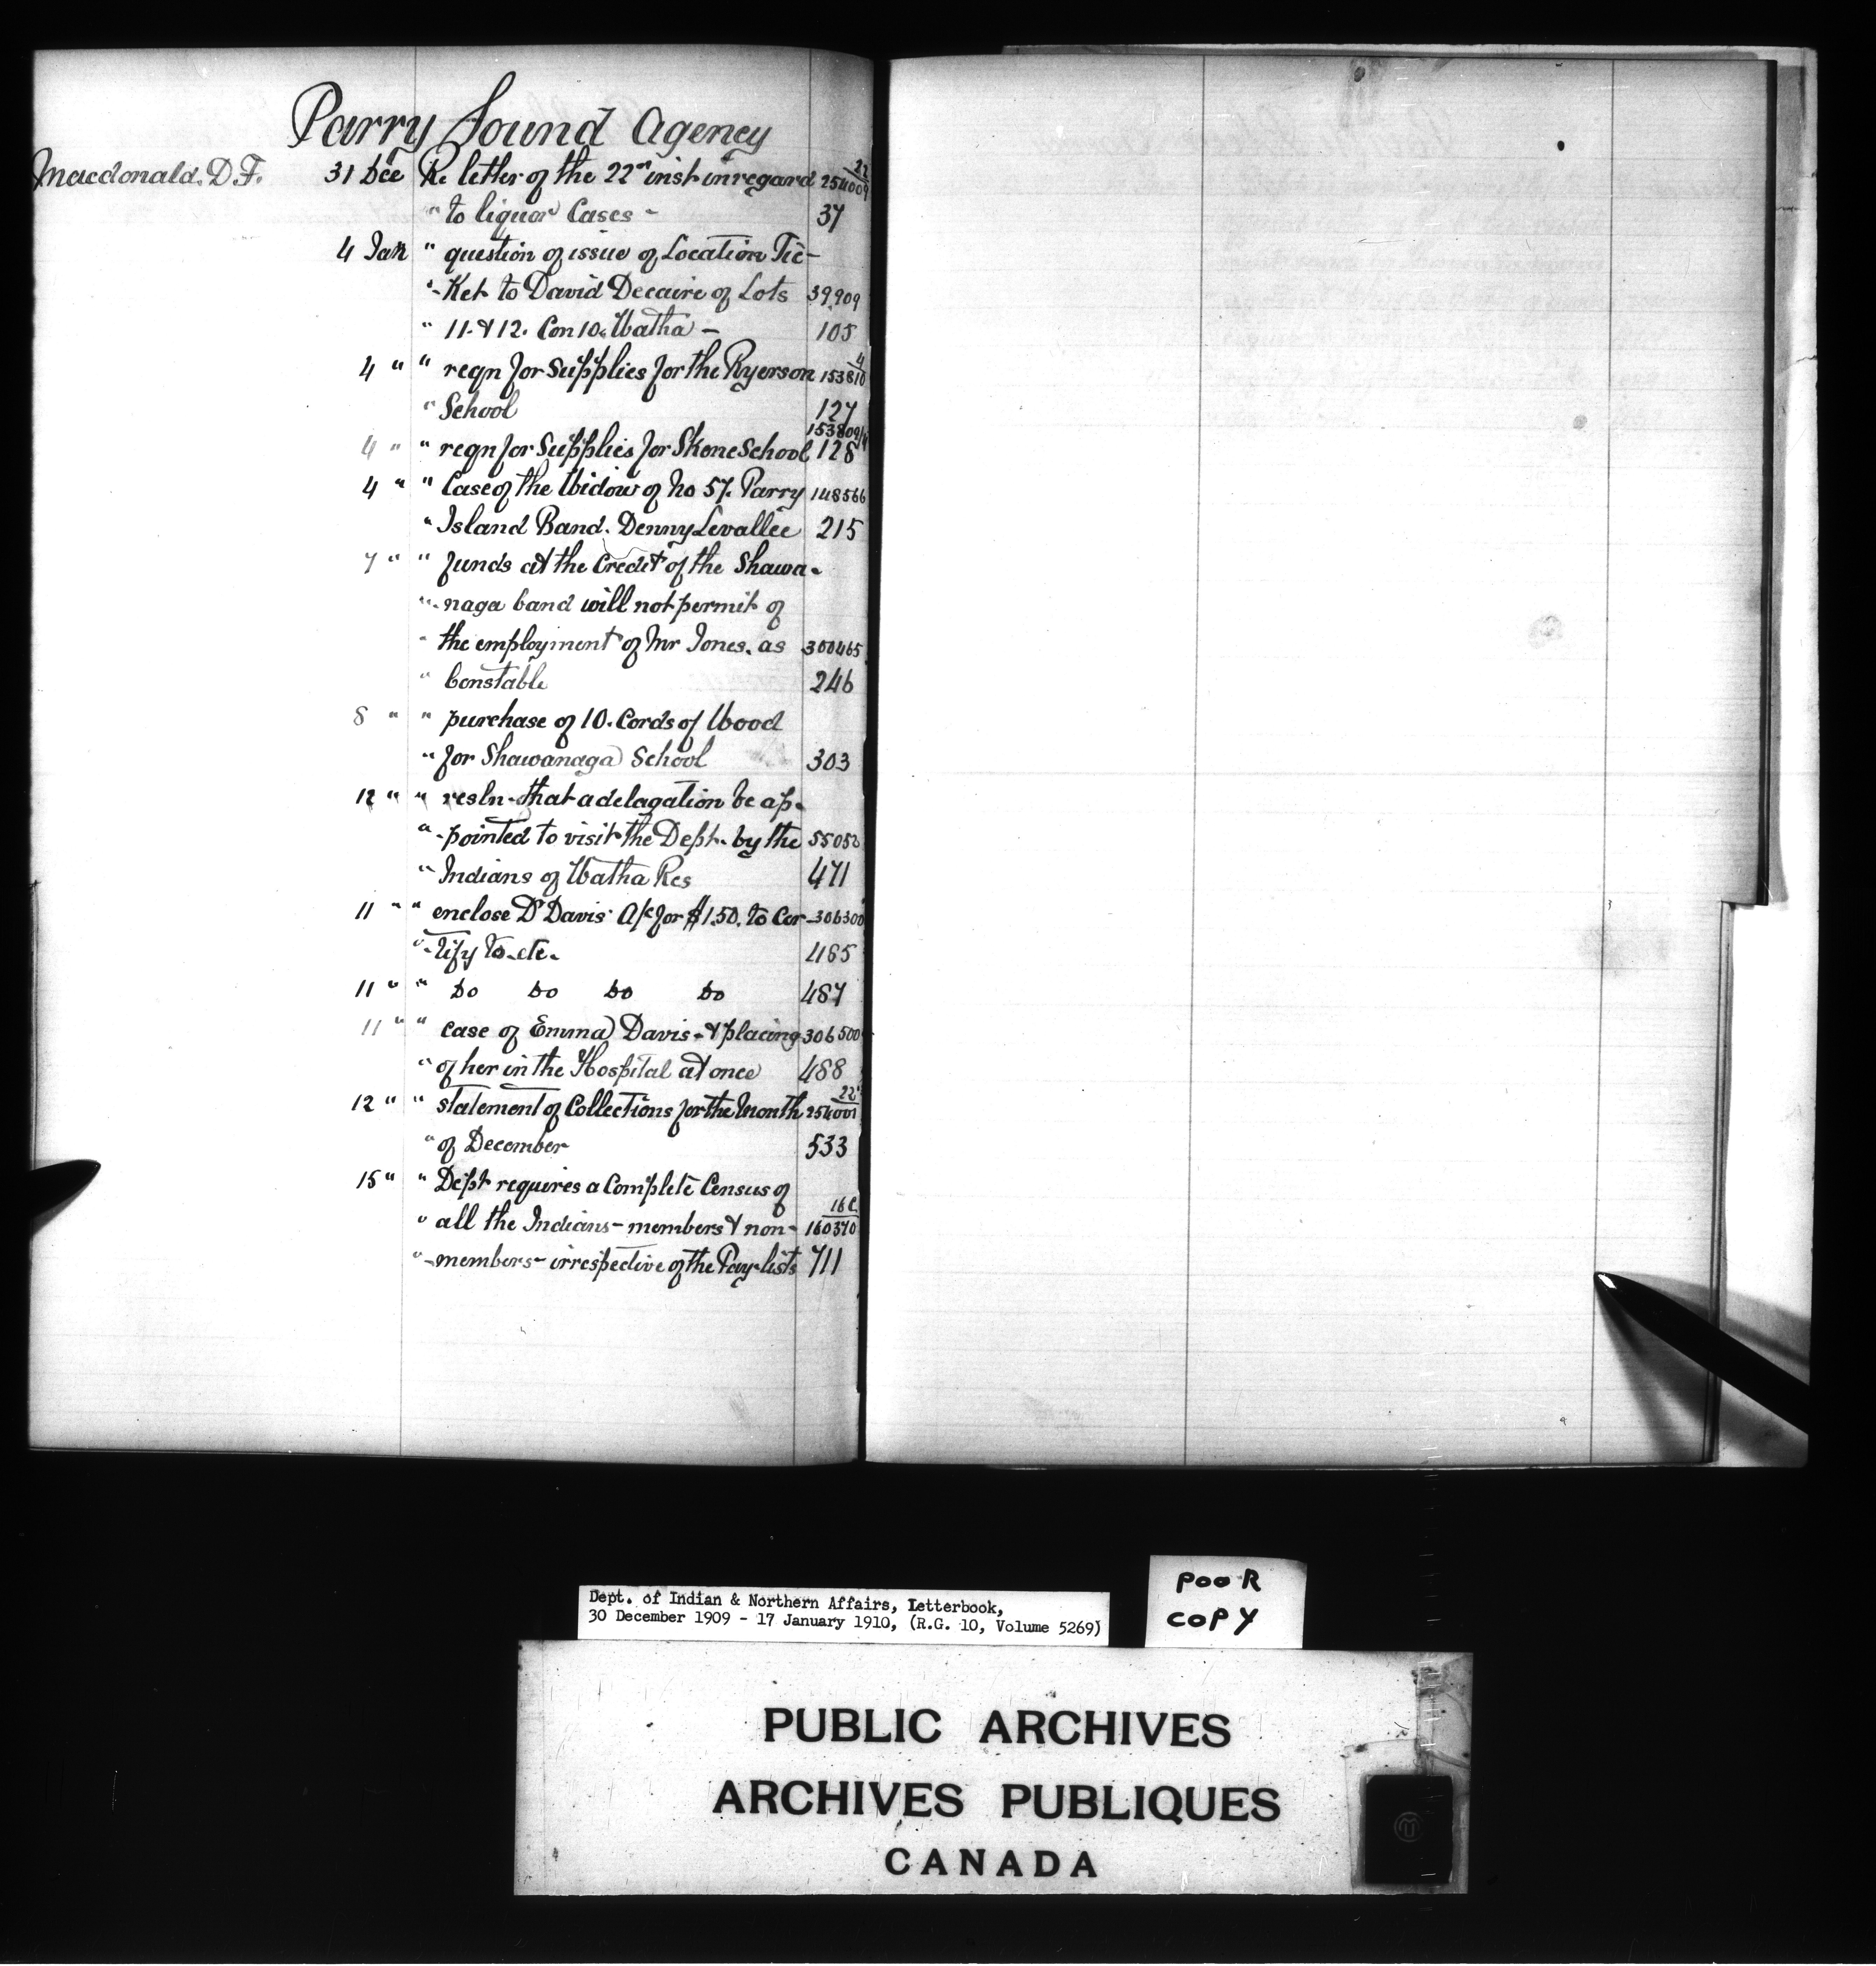 Parry Sound Agency
Macdonald. D. F. 31 Dec Re letter of the 22nd inst in regard 254009 22
" to liquor Cases - 37
4 Jan " question of issue of Location Tic-
"-Ket to David Decaire of Lots 39,909
" 11. & 12. Con 10. Watha - 105
4 " " reqn for Supplies for the Ryerson 153810 4
" School 127
153809/4
4 " " reqn for Supplies for Skene School 128
4 " " Case of the Widow of No 57. Parry 148566
" Island Band. Denny Levallee 215
7 " " funds at the Credit of the Shawa-
"-naga band will not permit of
" the employment of Mr Jones. as 300465
" Constable 246
8 " " purchase of 10. Cords of Wood
" for Shawanaga School 303
12 " " resln - that a delagation be ap-
"-pointed to visit the Dept. by the 55052
" Indians of Watha Res 471
11 " " enclose Dr Davis' A/c for $1.50. to Cer- 306300
"-tify to. etc. 485
11 " " Do Do Do Do 487
11 " " case of Emma Davis - & placing 306500
" of her in the Hospital at once 488
12 " " statement of Collections for the Month 254001 22
" of December 533
15 " " Dept requires a Complete Census of
" all the Indians - members & non- 160370
"-members - irrespective of the Pay-lists 711
Dept. of Indian & Northern Affairs, Letterbook,
30 December 1909 - 17 January 1910, (R.G. 10, Volume 5269)
POOR
COPY
PUBLIC ARCHIVES
ARCHIVES PUBLIQUES
CANADA